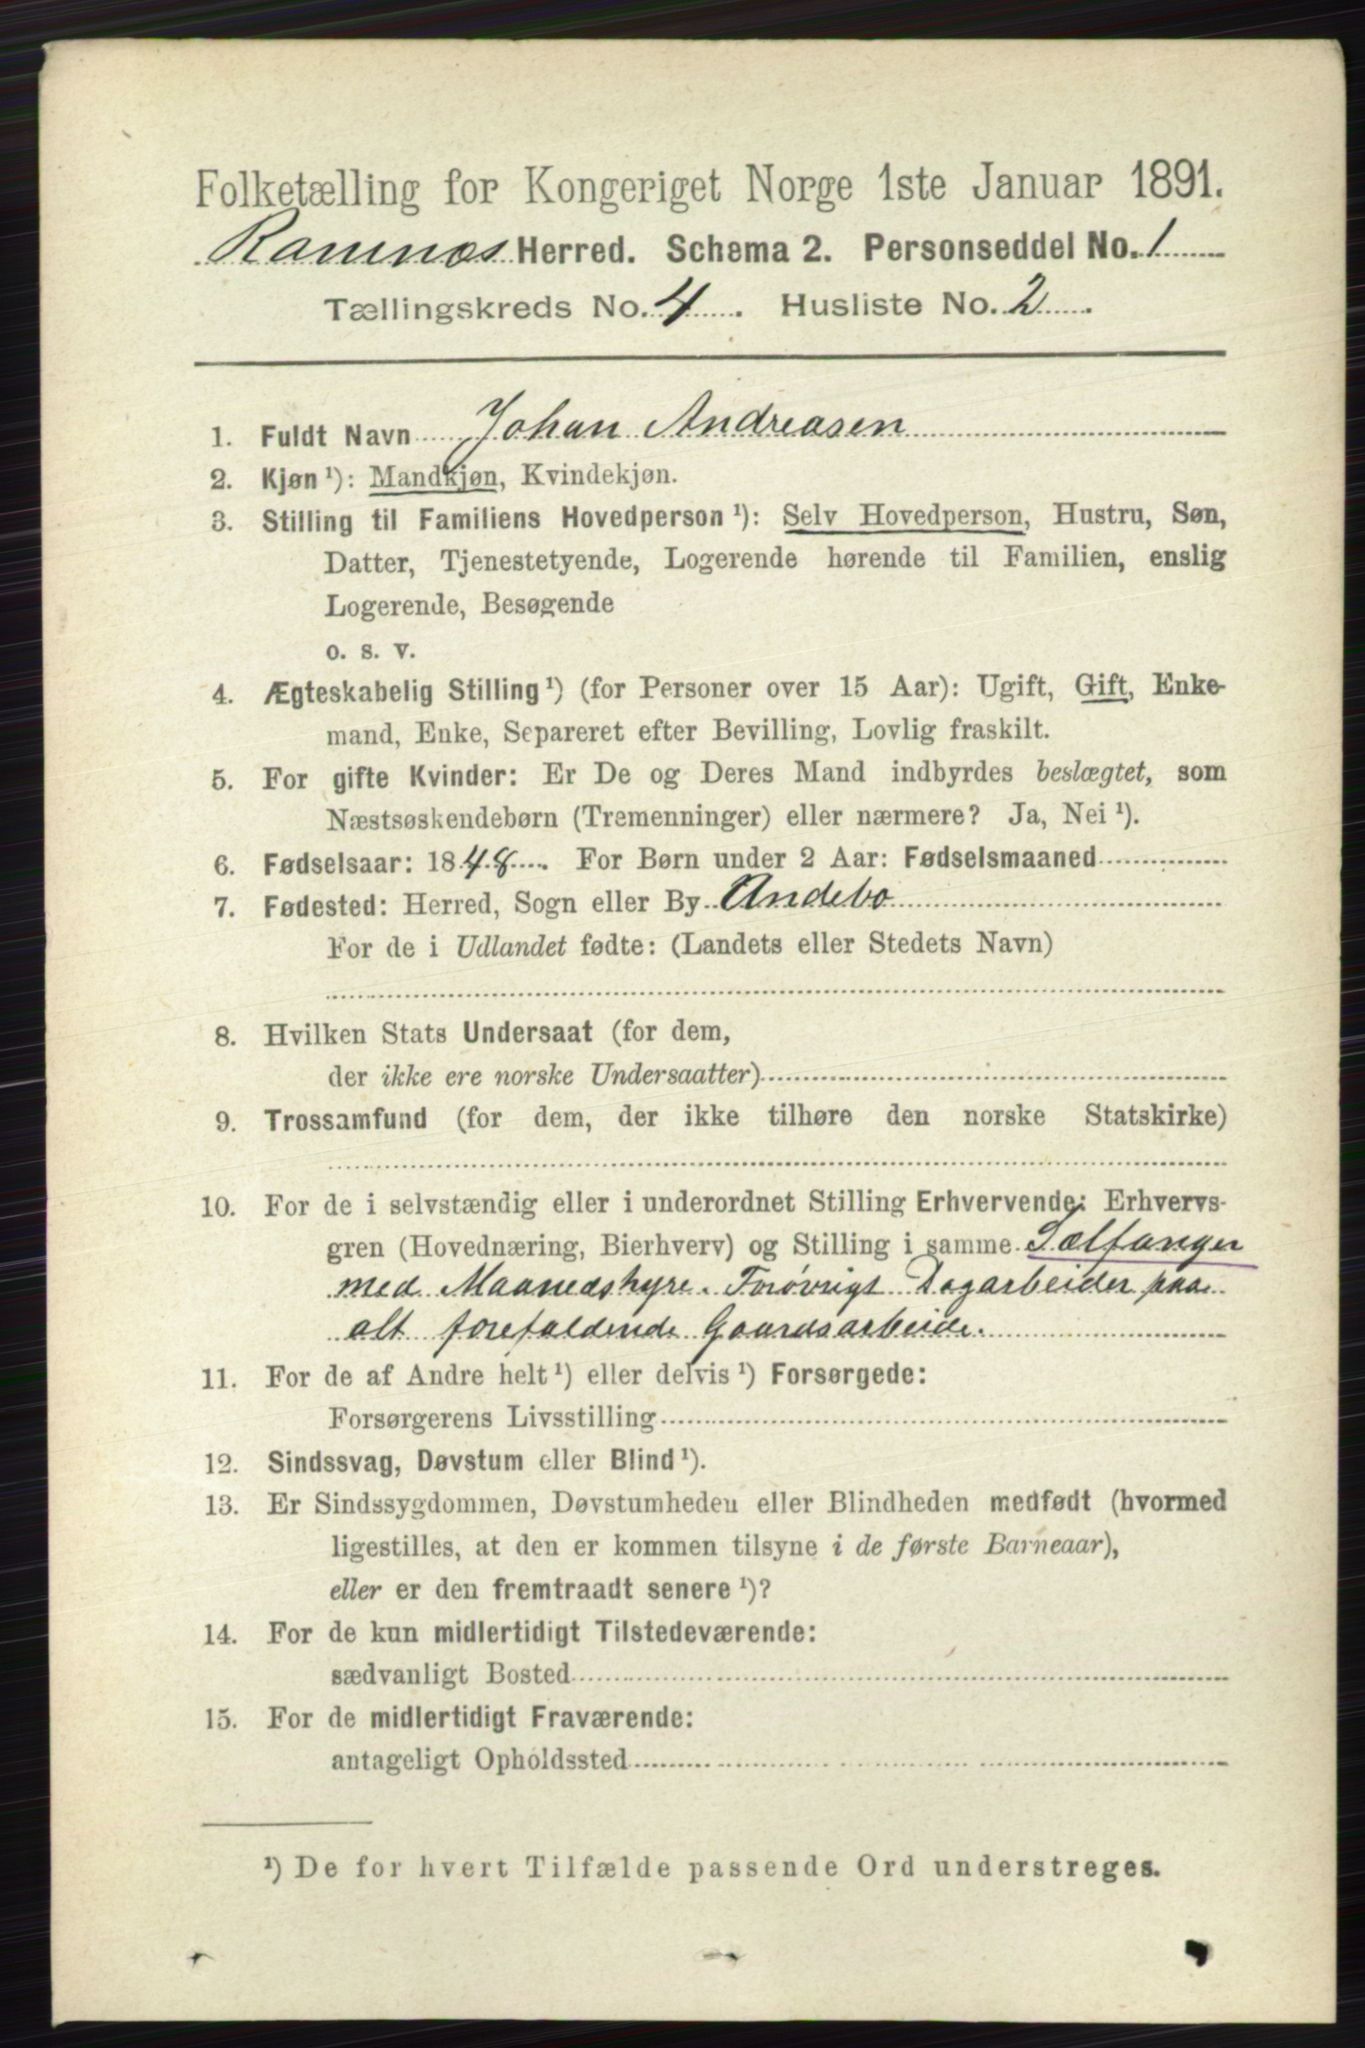 Folketælling for Kongeriget Norge 1ste Januar 1891.
Ramnæs Herred. Schema 2. Personseddel No. 1
Tællingskreds No. 4. Husliste No. 2.
1. Fuldt Navn Johan Andreasen
2. Kjøn ¹): Mandkjøn, Kvindekjøn.
3. Stilling til Familiens Hovedperson ¹): Selv Hovedperson, Hustru, Søn,
Datter, Tjenestetyende, Logerende hørende til Familien, enslig
Logerende, Besøgende
o. s. v.
4. Ægteskabelig Stilling ¹) (for Personer over 15 Aar): Ugift, Gift, Enke-
mand, Enke, Separeret efter Bevilling, Lovlig fraskilt.
5. For gifte Kvinder: Er De og Deres Mand indbyrdes beslægtet, som
Næstsøskendebørn (Tremenninger) eller nærmere? Ja, Nei ¹).
6. Fødselsaar: 1848. For Børn under 2 Aar: Fødselsmaaned
7. Fødested: Herred, Sogn eller By Andebo
For de i Udlandet fødte: (Landets eller Stedets Navn)
8. Hvilken Stats Undersaat (for dem,
der ikke ere norske Undersaatter)
9. Trossamfund (for dem, der ikke tilhøre den norske Statskirke)
10. For de i selvstændig eller i underordnet Stilling Erhvervende: Erhvervs-
gren (Hovednæring, Bierhverv) og Stilling i samme Sælfanger
med Maanedshyre. Forøvrigt Dagarbeider paa
alt forefaldende Gaardsarbeide.
11. For de af Andre helt ¹) eller delvis ¹) Forsørgede:
Forsørgerens Livsstilling
12. Sindssvag, Døvstum eller Blind ¹).
13. Er Sindssygdommen, Døvstumheden eller Blindheden medfødt (hvormed
ligestilles, at den er kommen tilsyne i de første Barneaar),
eller er den fremtraadt senere ¹)?
14. For de kun midlertidigt Tilstedeværende:
sædvanligt Bosted
15. For de midlertidigt Fraværende:
antageligt Opholdssted
¹) De for hvert Tilfælde passende Ord understreges.